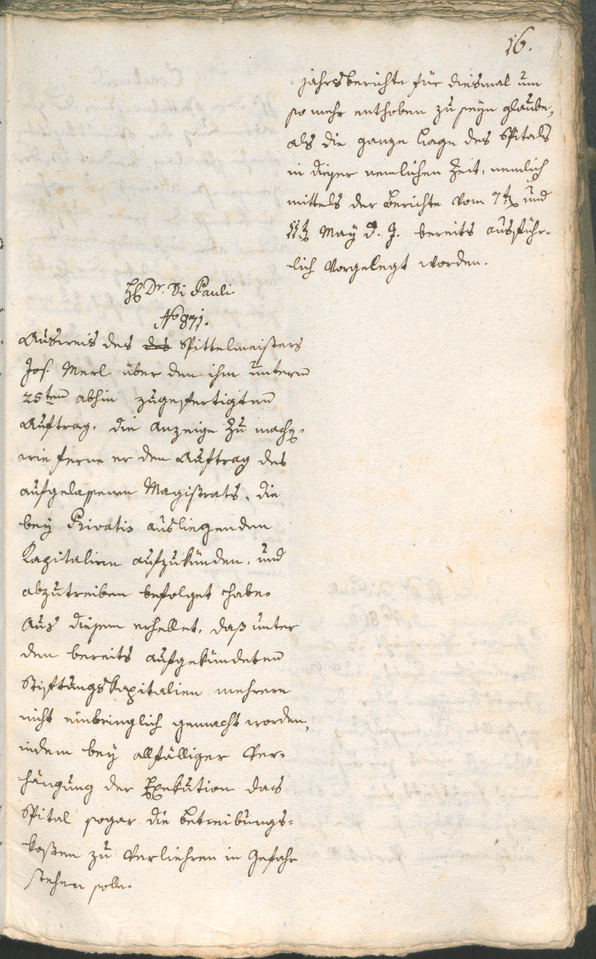 16.
jahrsberichte für diesmal um
so mehr enthoben zu seyn glaube,
als die ganze Lage des Spitals
in dieser nemlichen Zeit, nemlich
mittels der Berichte vom 7t und
11t May d. J. bereits ausführ-
lich vorgelegt worden.
H Dr. Di Pauli
No 871.
Ausweis des das Spittelmeisters
Jos. Merl über den ihm unterm
25ten abhin zugefertigten
Auftrag, die Anzeige zu machen,
wie ferne er den Auftrag des
aufgelassenen Magistrats, die
bey Privatis ausliegenden
Kapitalien aufzukünden, und
abzutreiben befolget habe.
Aus diesem erhellet, daß unter
den bereits aufgekündeten
Stiftungskapitalien mehrere
nicht einbringlich gemacht worden,
indem bey allfälliger Ver-
hängung der Exekution das
Spital sogar die Betreibungs-
kosten zu verliehren in Gefahr
stehen solle.